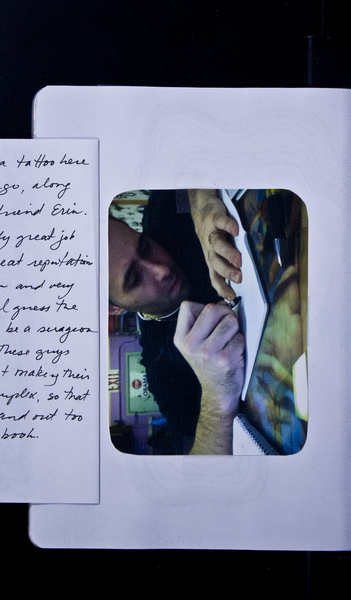 a tattoo here
go, along
friend Erin.
ly great job
eat reputation
and very
l guess the
be a surgeon
these guys
t make their
mplex, so that
and out too
book.
OBAMA